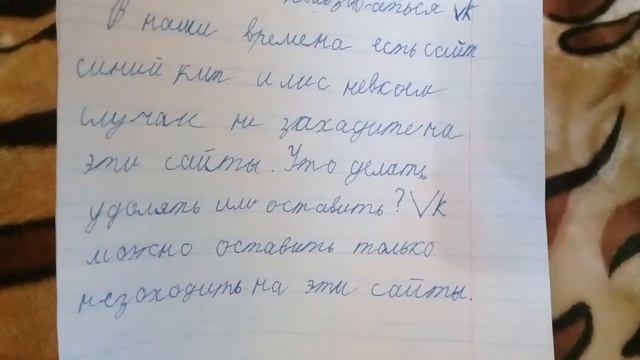 аться VK
В наши времена есть сайт
синий кит или лис невкоем
случаи не захадите на
эти сайты. Что делать
удолять или оставить? VK
можно оставить только
незоходить на эти сайты.